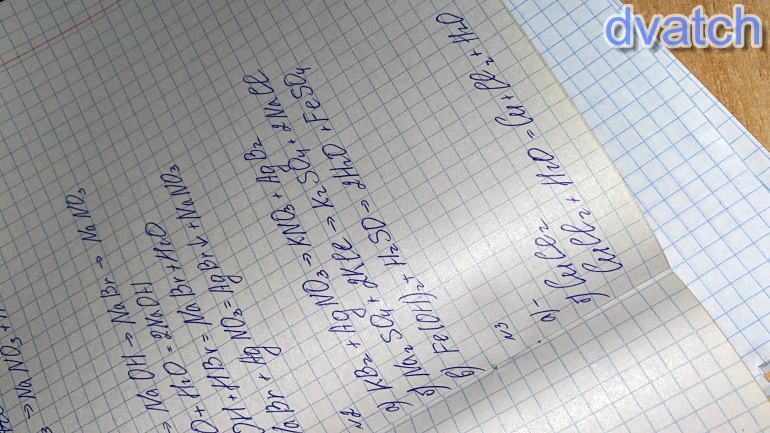 dvatch
→ NaNO3 + H
→ NaOH → NaBr → NaNO3
O + H2O = 2NaOH
OH + HBr = NaBr + H2O
NaBr + AgNO3 = AgBr↓ + NaNO3
№2
а) KBr + AgNO3 → KNO3 + AgBr
б) Na2SO4 + 2KCl → K2SO4 + 2NaCl
в) Fe(OH)2 + H2SO = 2H2O + FeSO4
№3
а) -
б) CuCl2
CuCl2 + H2O = Cu + Cl2 + H2O